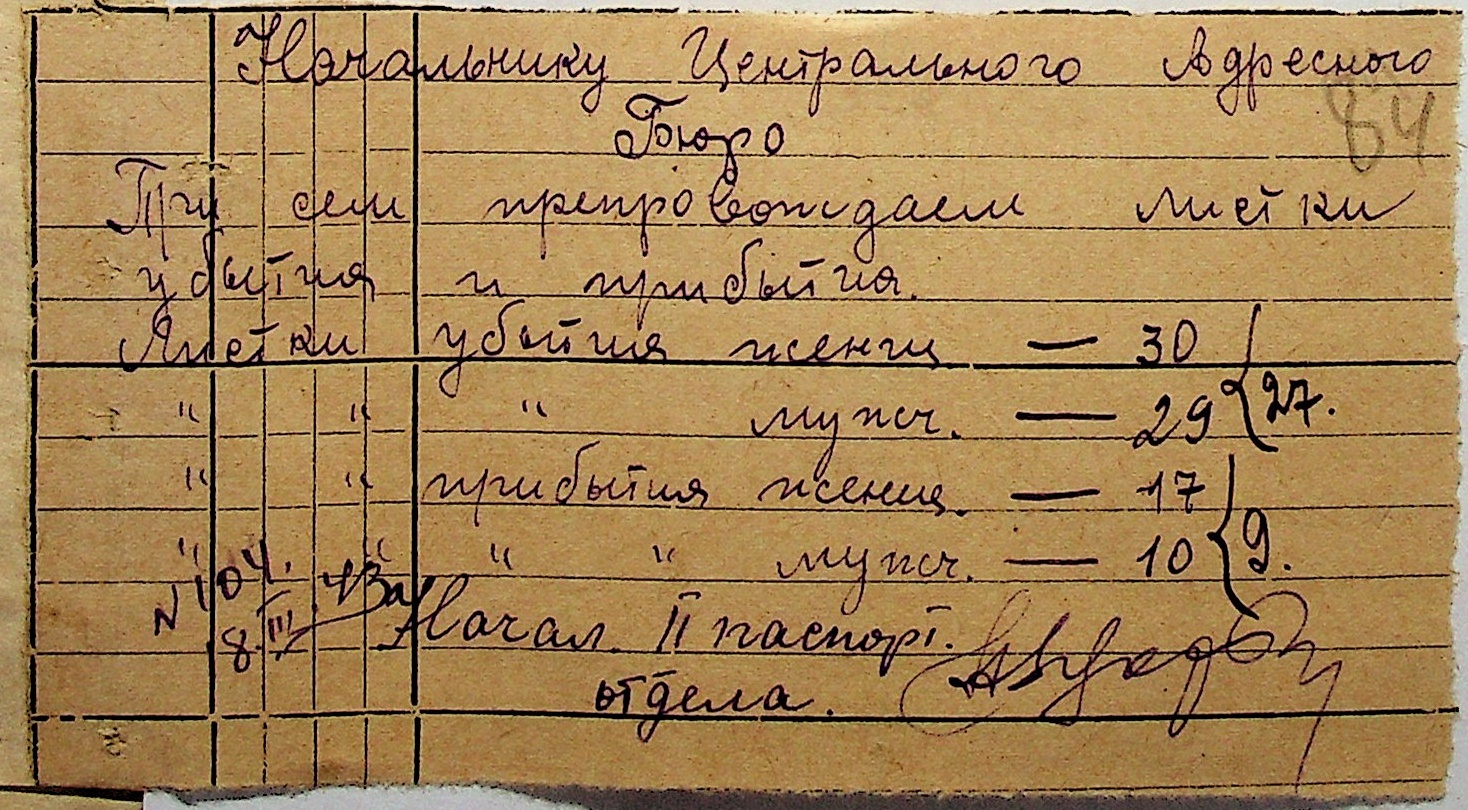 Начальнику Центрального Адресного
84
Бюро
При сем препровождаем листки
убытия и прибытия.
Листки убытия женщ — 30
" " " мужч. — 29 } 27.
" " прибытия женщ. — 17
" " " " мужч. — 10 } 9.
N 104.
8.III.43 За Начал. II паспорт.
отдела.